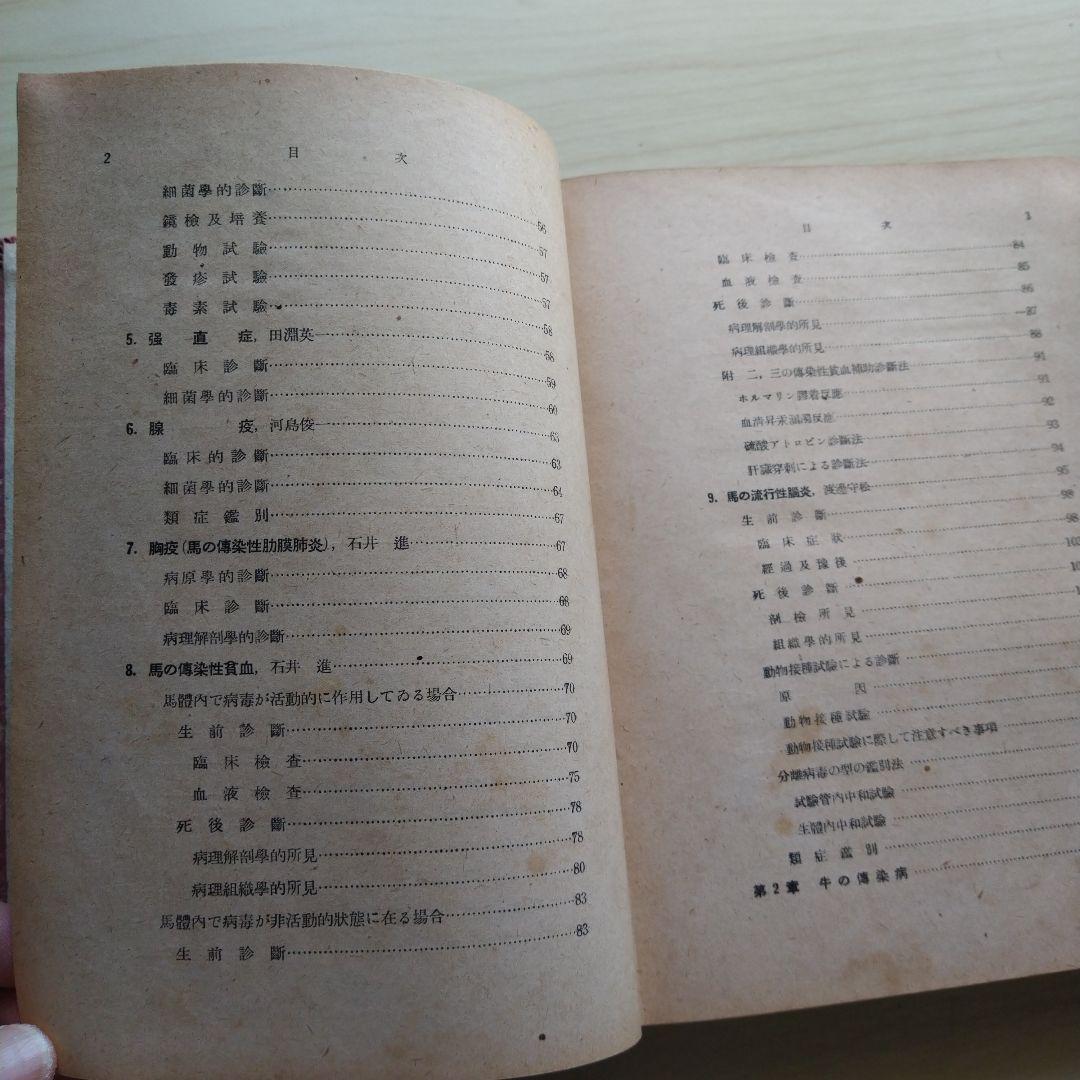 2 目 次
細菌學的診斷 56
鏡檢及培養 57
動物試驗 57
發疹試驗 57
毒素試驗 58
5. 强直症, 田淵英 58
臨床診斷 59
細菌學的診斷 60
6. 腺疫, 河島俊一 63
臨床的診斷 63
細菌學的診斷 64
類症鑑別 67
7. 胸疫(馬の傳染性肋膜肺炎), 石井 進 67
病原學的診斷 68
臨床診斷 68
病理解剖學的診斷 69
8. 馬の傳染性貧血, 石井 進 69
馬體內で病毒が活動的に作用してゐる場合 70
生前診斷 70
臨床檢查 70
血液檢查 75
死後診斷 78
病理解剖學的所見 78
病理組織學的所見 80
馬體內で病毒が非活動的狀態に在る場合 83
生前診斷 83
目 次 3
臨床檢查 84
血液檢查 85
死後診斷 86
病理解剖學的所見 87
病理組織學的所見 88
附 二, 三の傳染性貧血補助診斷法 91
ホルマリン膠着反應 91
血清昇汞溷濁反應 92
硫酸アトロピン診斷法 93
肝臟穿刺による診斷法 94
9. 馬の流行性腦炎, 渡邊守松 95
生前診斷 98
臨床症狀 98
經過及豫後
死後診斷
剖檢所見
組織學的所見
動物接種試驗による診斷
原因
動物接種試驗
動物接種試驗に際して注意すべき事項
分離病毒の型の鑑別法
試驗管內中和試驗
生體內中和試驗
類症鑑別
第2章 牛の傳染病